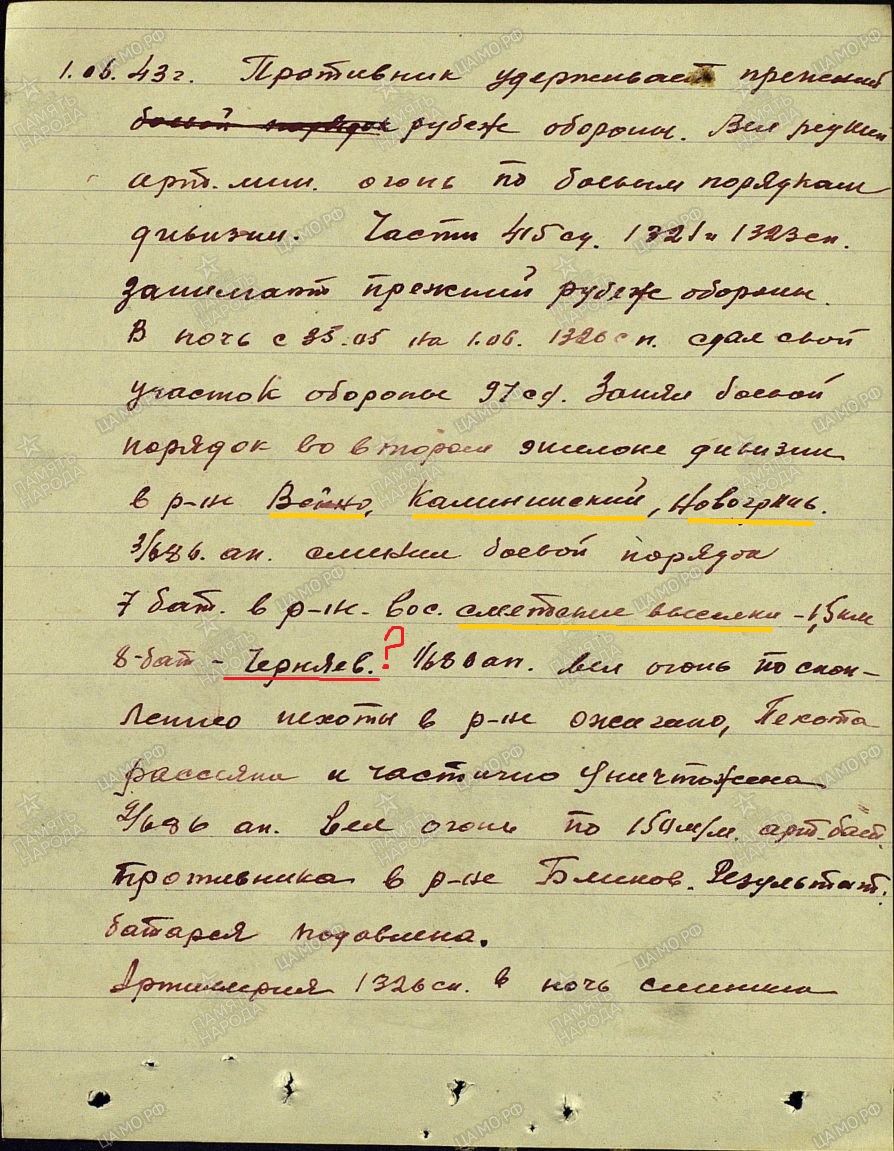 1.06.43г. Противник удерживает прежний
боевой порядок рубеж обороны. Вел редкий
арт. мин. огонь по боевым порядкам
дивизии. Части 415сд. 1321 и 1323сп.
занимают прежний рубеж обороны.
В ночь с 35.05 на 1.06. 1326сп. сдал свой
участок обороны 97сд. Занял боевой
порядок во втором эшелоне дивизии
в р-не Вейно, Калининский, Новогрынь.
3/686. ап. сменил боевой порядок
7 бат. в р-не вос. сметские выселки - 1,5 км
8-бат - Черняев. ? 1/686 ап. вел огонь по скоп-
лению пехоты в р-не ожагано, Пехота
рассеяна и частично уничтожена
2/686 ап. вел огонь по 150м/м. арт. бат.
противника в р-не Блинов. Результат:
батарея подавлена.
Артиллерия 1326сп. в ночь сменила
ПАМЯТЬ НАРОДА
ЦАМО.РФ